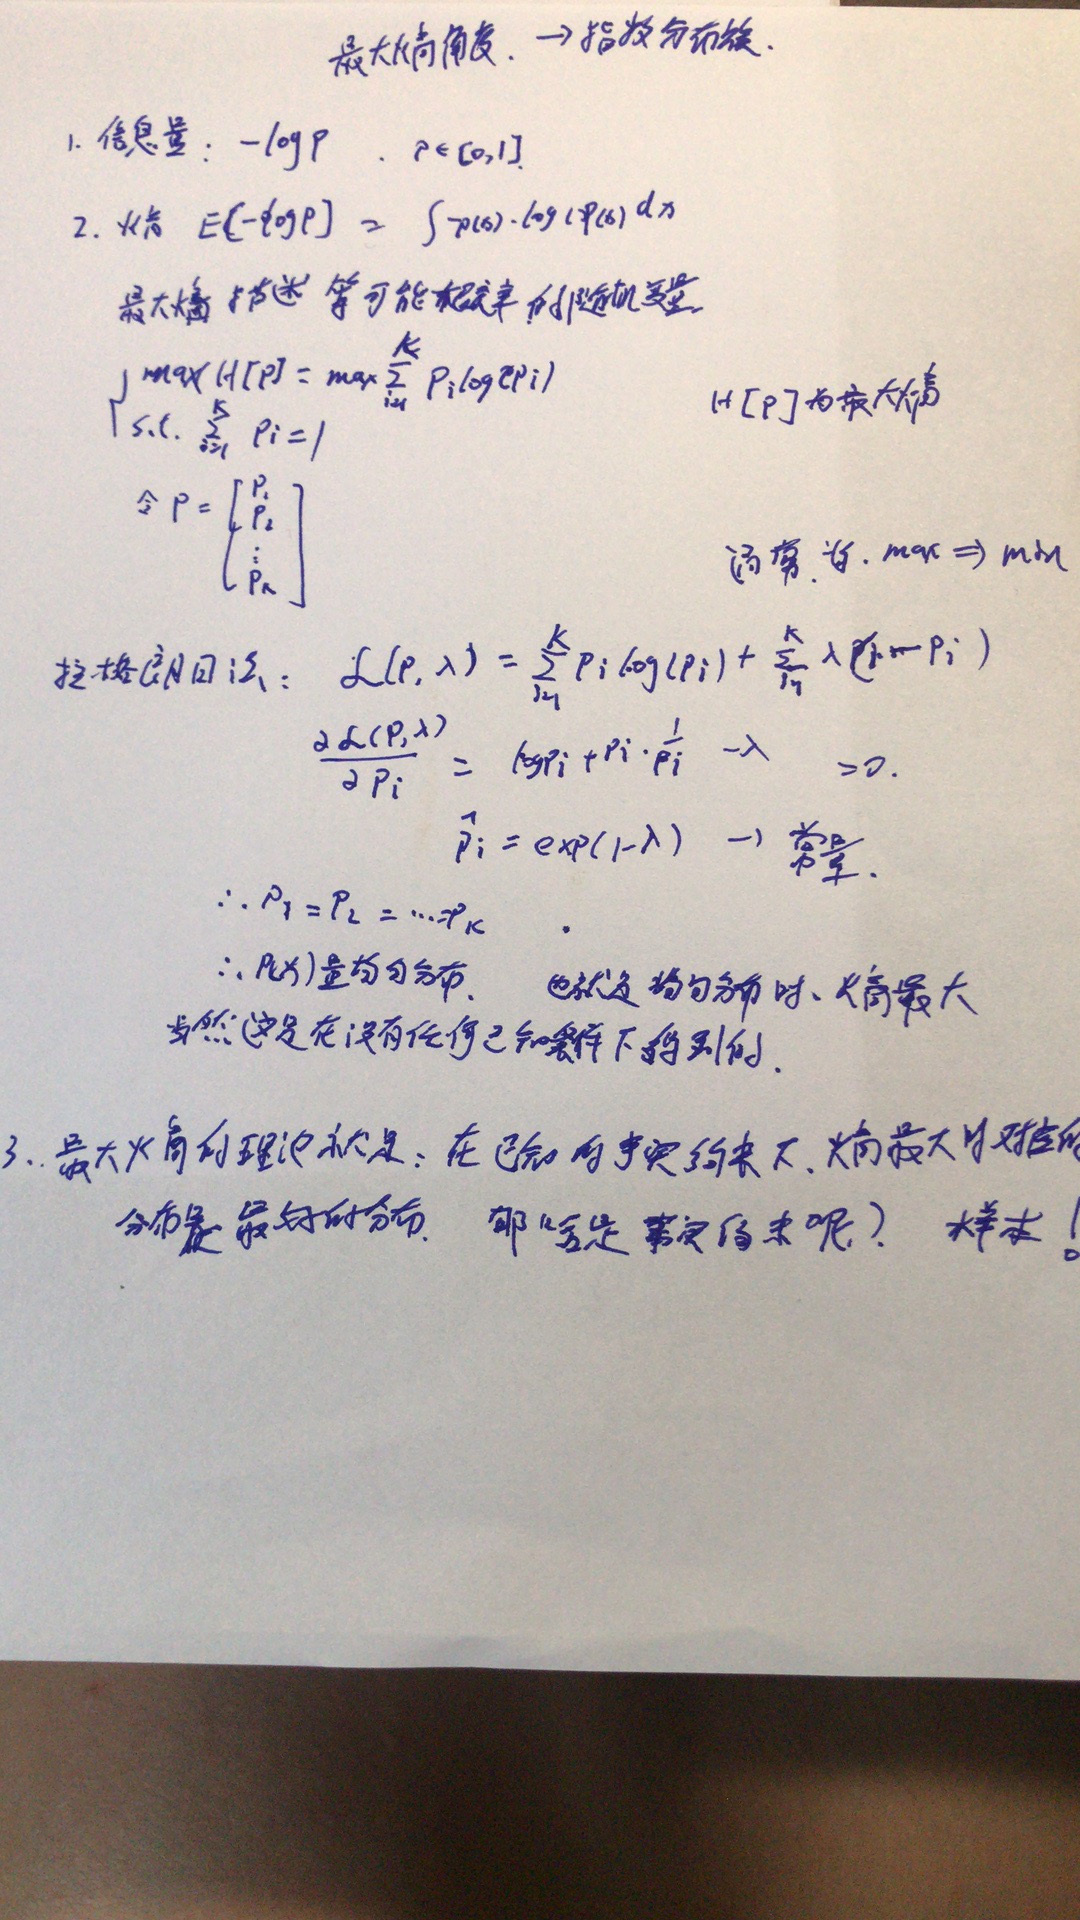 最大熵角度. → 指数分布族.
1. 信息量: -log p . p∈[0,1].
2. 熵 E[-log p] = ∫ -p(x)·log p(x) dx
最大熵描述等可能概率的随机变量.
max H[p] = max Σ_{i=1}^{K} p_i log(p_i)
H[p]为最大熵
s.t. Σ_{i=1}^{K} p_i = 1
令 P = [P_1 P_2 ⋮ P_K]
通常, 首. max ⇒ min
拉格朗日法: L(P, λ) = Σ_{i=1}^{K} p_i log(p_i) + Σ_{i=1}^{K} λ( - p_i)
∂L(P, λ)/∂P_i = log p_i + p_i · 1/p_i - λ = 0.
p̂_i = exp(1-λ) → 常量.
∴ P_1 = P_2 = ... = P_K .
∴ P(x)是均匀分布. 也就是均匀分布时、熵最大
当然这是在没有任何已知条件下得到的.
3. 最大熵的理论就是: 在已知的事实约束下、熵最大时对应的
分布是最好的分布. 那啥是事实约束呢? 样本!